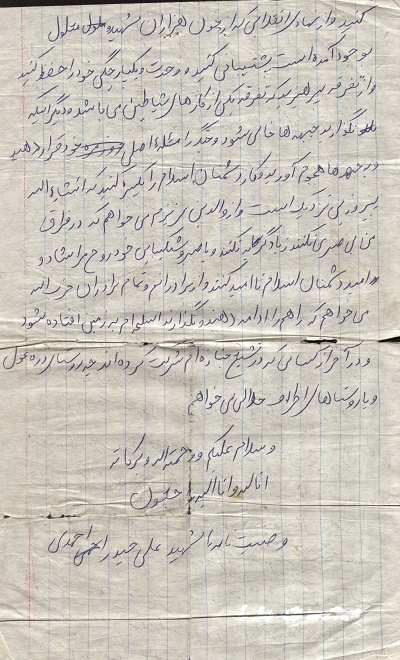 کنید و از نهادهای انقلابی که از خون هزاران شهید و معلول
بوجود آمده است پشتیبانی کنید و وحدت و یکپارچگی خود را حفظ کنید
و از تفرقه بپرهیزید که تفرقه یکی از کارهای شیاطین می باشد و دیگر اینکه
نگذارید جبهه ها خالی شود و جنگ را مسئله اصلی خود قرار دهید
و به جبهه ها هجوم آورید و کار دشمنان اسلام را یکسره کنید که انشاء الله
پیروزی نزدیک است و از والدین عزیزم می خواهم که در فراق
من بی صبری نکنند زیاد گریه نکنند و با صبر و شکیبایی خود روح مرا شاد و
دشمنان اسلام را ناامید کنند و از برادرانم و تمام برادران حزب الله
می خواهم که راهم را ادامه دهند و نگذارند اسلحه ام به زمین افتاده شود
و در آخر از کسانی که در تشییع جنازه ام شرکت کرده اند چه روستای
و یا روستاهای اطراف حلالی می خواهم
و سلام علیکم و رحمته الله و برکاته
انا لله و انا الیه راجعون
وصیت نامه شهید علی حیدر احمدی